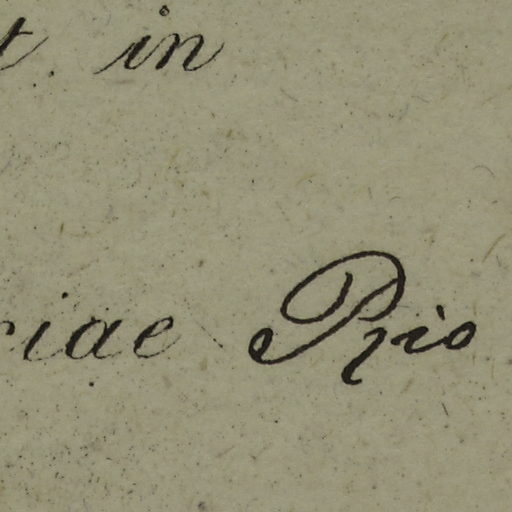 t. in
riae Rio